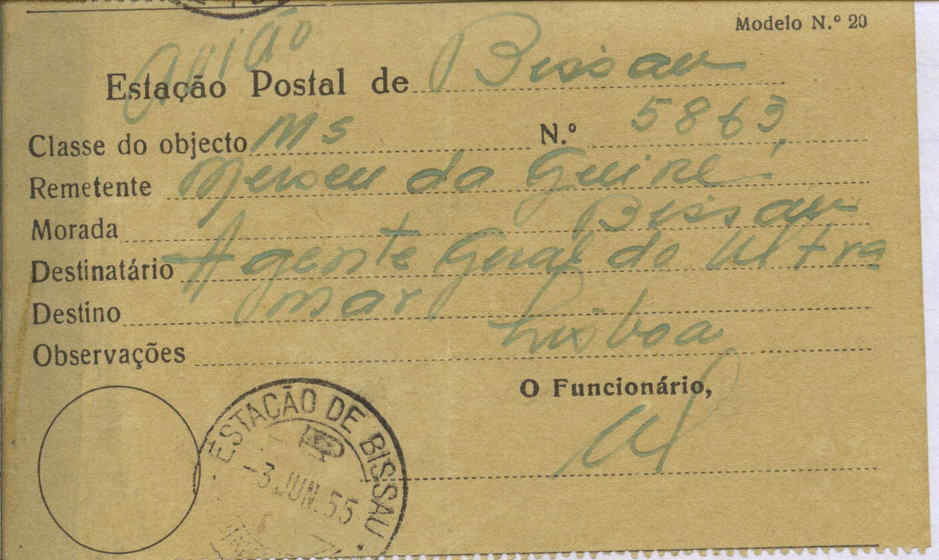 Modelo N.º 20
avião
Estação Postal de Bissau
Classe do objecto Ms N.º 5863
Remetente Museu da Guiné
Morada Bissau
Destinatário Agente Geral do Ultra
Destino mar
Lisboa
Observações
O Funcionário,
ESTAÇÃO DE BISSAU
-3.JUN.55